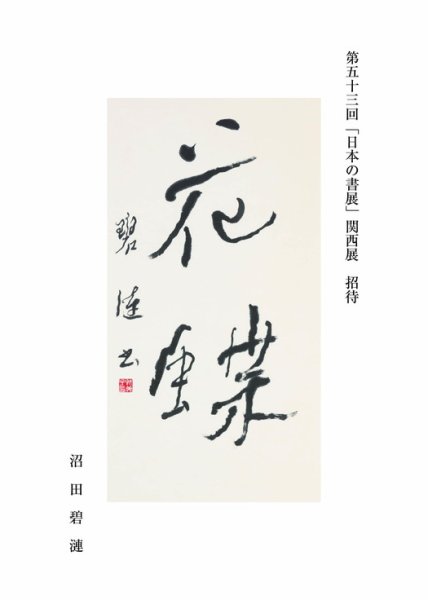 第五十三回「日本の書展」関西展　招待
花
蝶
碧漣書
沼田碧漣